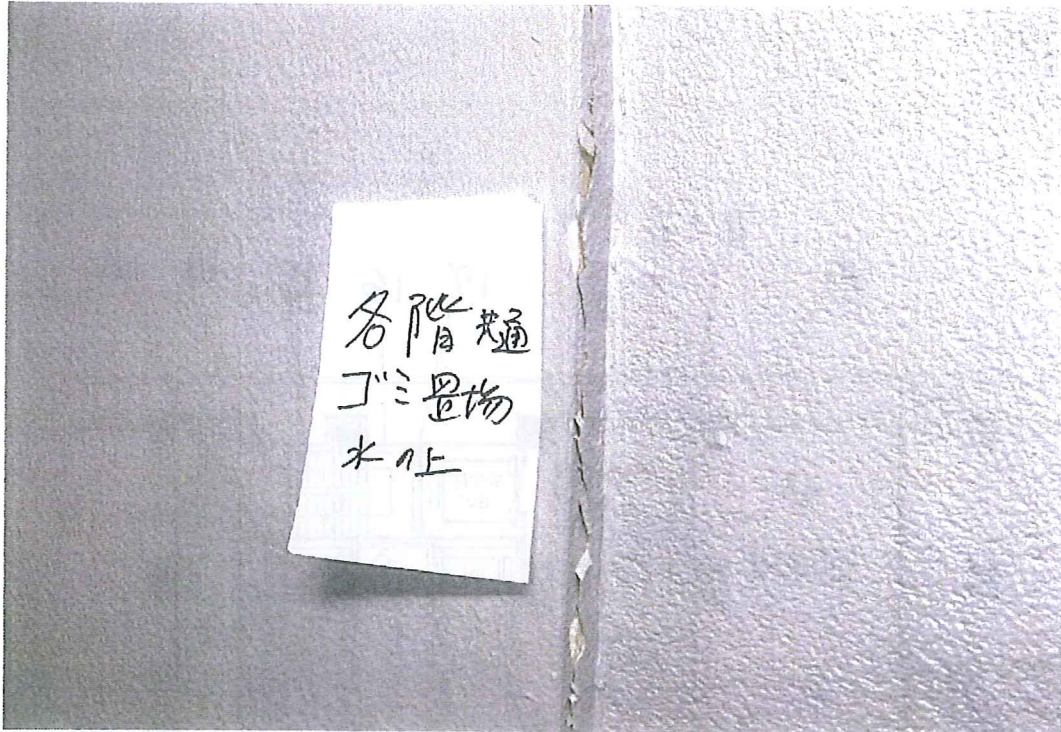 各階共通
ゴミ置場
水の上